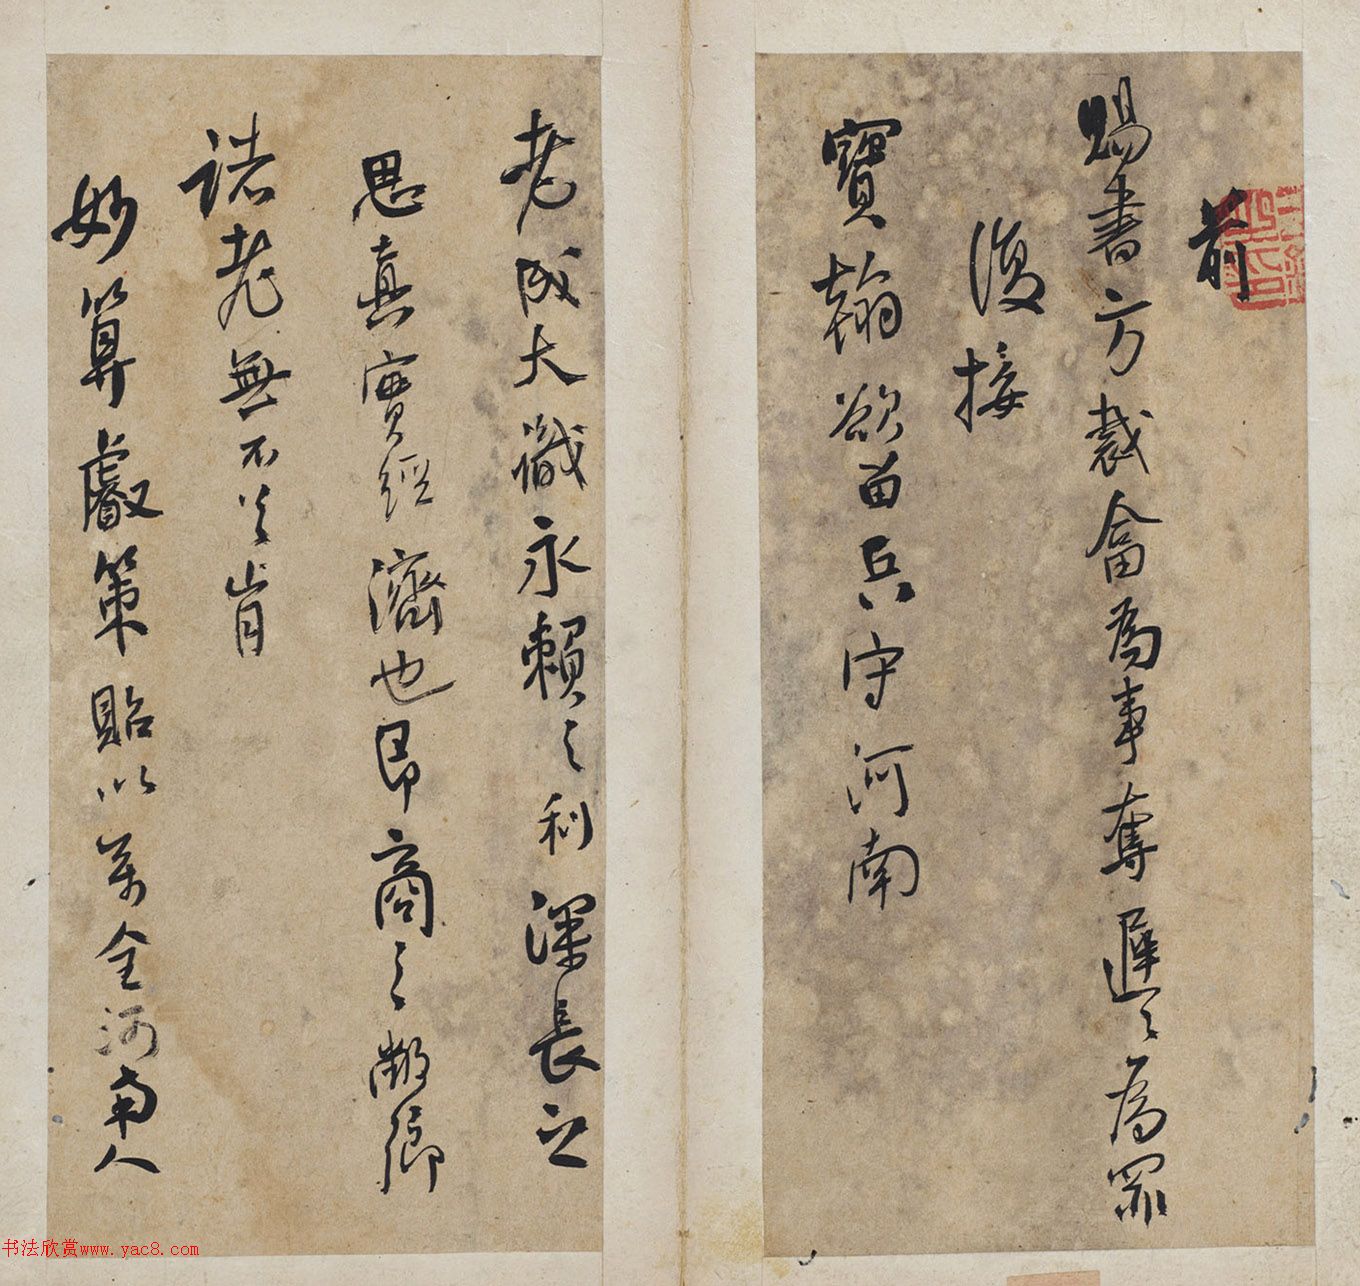 前
賜書方裁畣為事奪遲遲為罪
復接
寶翰欲留兵守河南
老成大識永賴之利深長之
思真實經濟也即商之敝鄉
諸老無不首肯
妙算叡策貽以萬全河南人
书法欣赏www.yac8.com